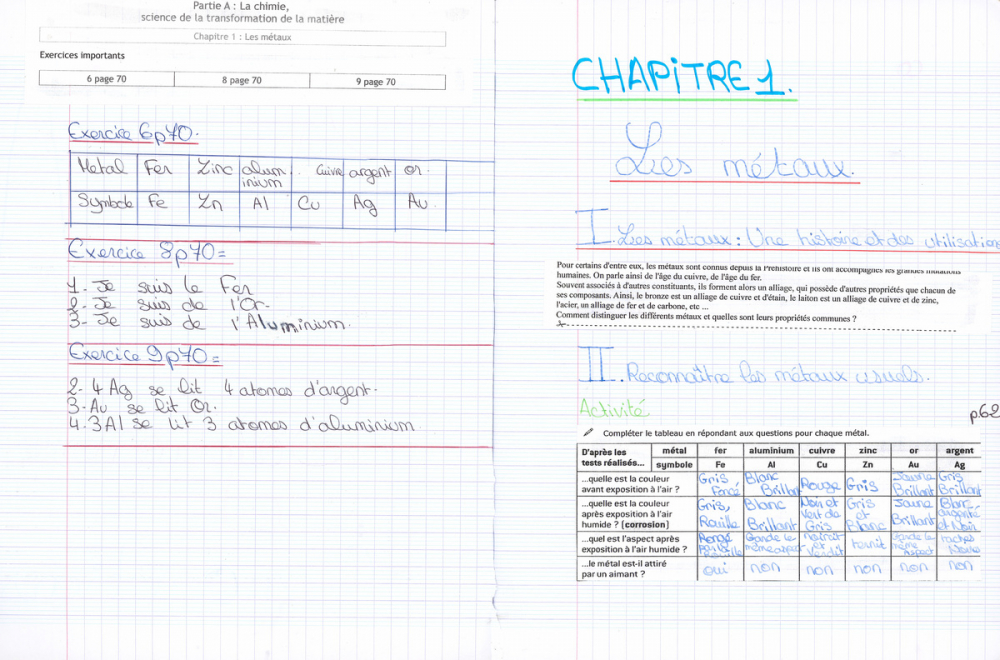 Partie A : La chimie,
science de la transformation de la matière
Chapitre 1 : Les métaux
Exercices importants
6 page 70 8 page 70 9 page 70
Exercice 6p70.
Métal Fer Zinc alum inium Cuivre argent or
Symbole Fe Zn Al Cu Ag Au
Exercice 8p70=
1. Je suis le Fer
2. Je suis de l'Or.
3. Je suis de l'Aluminium.
Exercice 9p70=
2. 4 Ag se lit 4 atomes d'argent.
3. Au se lit Or.
4. 3Al se lit 3 atomes d'aluminium
CHAPITRE 1.
Les métaux.
I. Les métaux : Une histoire et des utilisations
Pour certains d'entre eux, les métaux sont connus depuis la Préhistoire et ils ont accompagnés les grandes mutations
humaines. On parle ainsi de l'âge du cuivre, de l'âge du fer.
Souvent associés à d'autres constituants, ils forment alors un alliage, qui possède d'autres propriétés que chacun de
ses composants. Ainsi, le bronze est un alliage de cuivre et d'étain, le laiton est un alliage de cuivre et de zinc,
l'acier, un alliage de fer et de carbone, etc ...
Comment distinguer les différents métaux et quelles sont leurs propriétés communes ?
II. Reconnaître les métaux usuels.
Activité p62
Compléter le tableau en répondant aux questions pour chaque métal.
D'après les tests réalisés... métal fer aluminium cuivre zinc or argent
symbole Fe Al Cu Zn Au Ag
...quelle est la couleur avant exposition à l'air ? Gris Foncé Blanc Brillant Rouge Gris Jaune Brillant Gris Brillant
...quelle est la couleur après exposition à l'air humide ? (corrosion) Gris, Rouille Blanc Brillant Noir et Vert de Gris Gris et Blanc Jaune Brillant Blanc argenté et Noir
...quel est l'aspect après exposition à l'air humide ? Rongé par la rouille Garde le même aspect noircit et verdit ternit Garde le même aspect taches
...le métal est-il attiré par un aimant ? oui non non non non non